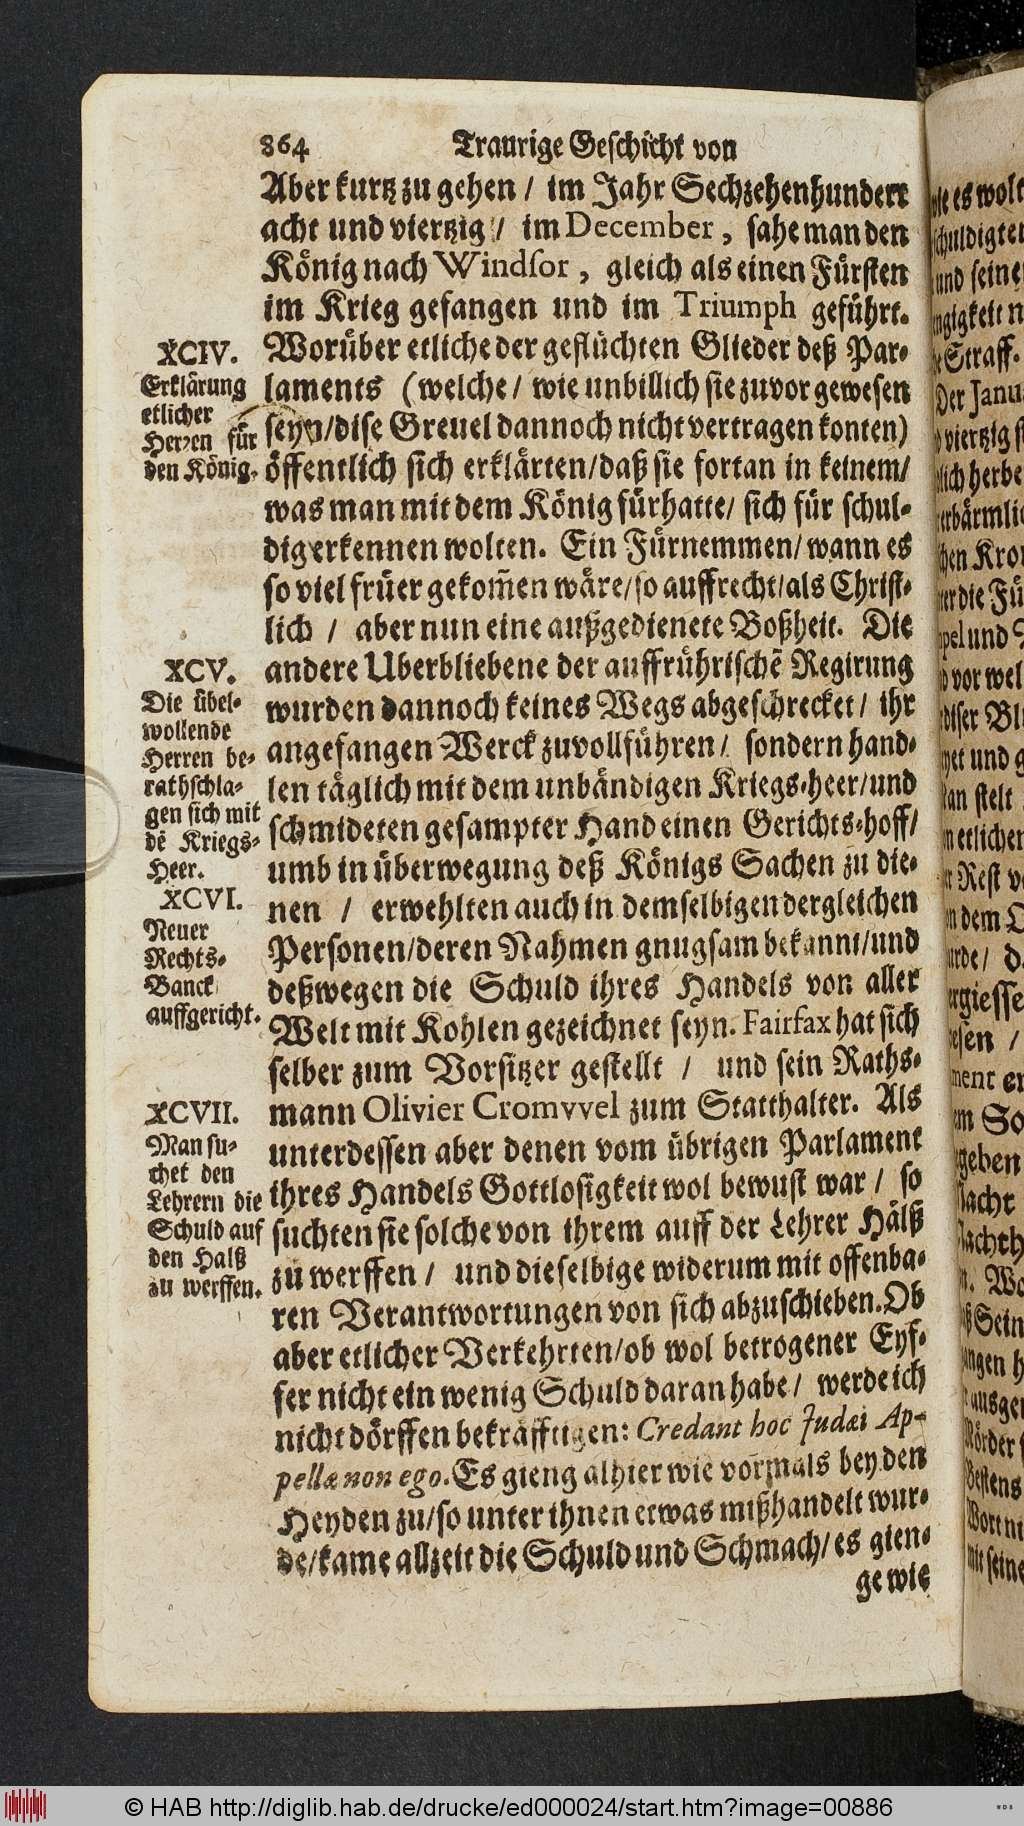 864 Traurige Geschicht von
Aber kurtz zu gehen / im Jahr Sechzehenhundert
acht und viertzig / im December, sahe man den
König nach Windsor, gleich als einen Fürsten
im Krieg gefangen und im Triumph geführt.
Worüber etliche der geflüchten Glieder deß Par-
laments (welche / wie unbillich sie zuvor gewesen
seyn/dise Greuel dannoch nicht vertragen konten)
öffentlich sich erklärten/daß sie fortan in keinem/
was man mit dem König fürhatte/ sich für schul-
dig erkennen wolten. Ein Fürnemmen/wann es
so viel früer gekom̃en wäre/so auffrecht/als Christ-
lich / aber nun eine außgedienete Boßheit. Die
andere Uberbliebene der auffrührischẽ Regirung
wurden dannoch keines Wegs abgeschrecket/ ihr
angefangen Werck zuvollführen/ sondern hand-
len täglich mit dem unbändigen Kriegs-heer/und
schmideten gesampter Hand einen Gerichts-hoff/
umb in überwegung deß Königs Sachen zu die-
nen / erwehlten auch in demselbigen dergleichen
Personen/deren Nahmen gnugsam bekannt/und
deßwegen die Schuld ihres Handels von aller
Welt mit Kohlen gezeichnet seyn. Fairfax hat sich
selber zum Vorsitzer gestellt / und sein Raths-
mann Olivier Cromvvel zum Statthalter. Als
unterdessen aber denen vom übrigen Parlament
ihres Handels Gottlosigkeit wol bewust war / so
suchten sie solche von ihrem auff der Lehrer Hälß
zu werffen / und dieselbige widerum mit offenba-
ren Verantwortungen von sich abzuschieben. Ob
aber etlicher Verkehrten/ob wol betrogener Eyf-
fer nicht ein wenig Schuld daran habe/ werde ich
nicht dörffen bekräfftigen: Credant hoc Judæi Ap-
pellæ non ego. Es gieng alhier wie vormals bey den
Heyden zu/so unter ihnen etwas mißhandelt wur-
de/kame allzeit die Schuld und Schmach/es gien-
ge wie
XCIV.
Erklärung
etlicher
Herren für
den König.
XCV.
Die übel-
wollende
Herren be-
rathschla-
gen sich mit
dẽ Kriegs-
Heer.
XCVI.
Neuer
Rechts-
Banck
auffgericht.
XCVII.
Man su-
chet den
Lehrern die
Schuld auf
den Halß
zu werffen.
© HAB http://diglib.hab.de/drucke/ed000024/start.htm?image=00886